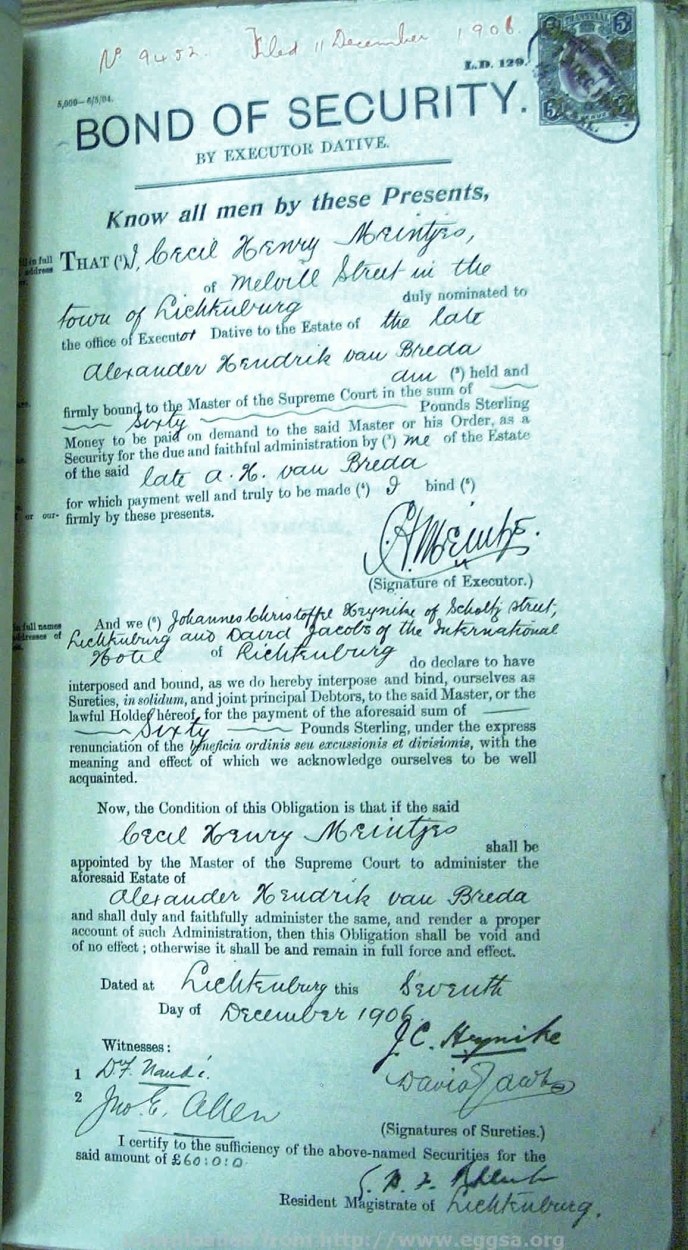 No 9452. Filed 11 December 1906.
L.D. 129.
5,000—6/5/04.
TRANSVAAL
5/ 5/
BOND OF SECURITY.
BY EXECUTOR DATIVE.
Know all men by these Presents,
in full
address
THAT (¹) I, Cecil Henry Meintjes,
of Melvill Street in the
town of Lichtenburg duly nominated to
the office of Executor Dative to the Estate of the late
Alexander Hendrik van Breda
am (²) held and
firmly bound to the Master of the Supreme Court in the sum of
Sixty Pounds Sterling
Money to be paid on demand to the said Master or his Order, as a
Security for the due and faithful administration by (³) me of the Estate
of the said late A. H. van Breda
for which payment well and truly to be made (⁴) I bind (⁵)
or our- firmly by these presents.
C.H. Meintjes.
(Signature of Executor.)
in full names
addresses of
And we (⁶) Johannes Christoffel Heynike of Scholtz Street,
Lichtenburg and David Jacobs of the International
Hotel of Lichtenburg
do declare to have
interposed and bound, as we do hereby interpose and bind, ourselves as
Sureties, in solidum, and joint principal Debtors, to the said Master, or the
lawful Holder hereof, for the payment of the aforesaid sum of
Sixty Pounds Sterling, under the express
renunciation of the beneficia ordinis seu excussionis et divisionis, with the
meaning and effect of which we acknowledge ourselves to be well
acquainted.
Now, the Condition of this Obligation is that if the said
Cecil Henry Meintjes shall be
appointed by the Master of the Supreme Court to administer the
aforesaid Estate of
Alexander Hendrik van Breda
and shall duly and faithfully administer the same, and render a proper
account of such Administration, then this Obligation shall be void and
of no effect; otherwise it shall be and remain in full force and effect.
Dated at Lichtenburg this Seventh
Day of December 1906.
J.C. Heynike
Witnesses:
1 D.F. Naudé.
David Jacobs
2 Jno. E. Allen
(Signatures of Sureties.)
I certify to the sufficiency of the above-named Securities for the
said amount of £60:0:0
Resident Magistrate of Lichtenburg.
Downloaded from http://www.eggsa.org